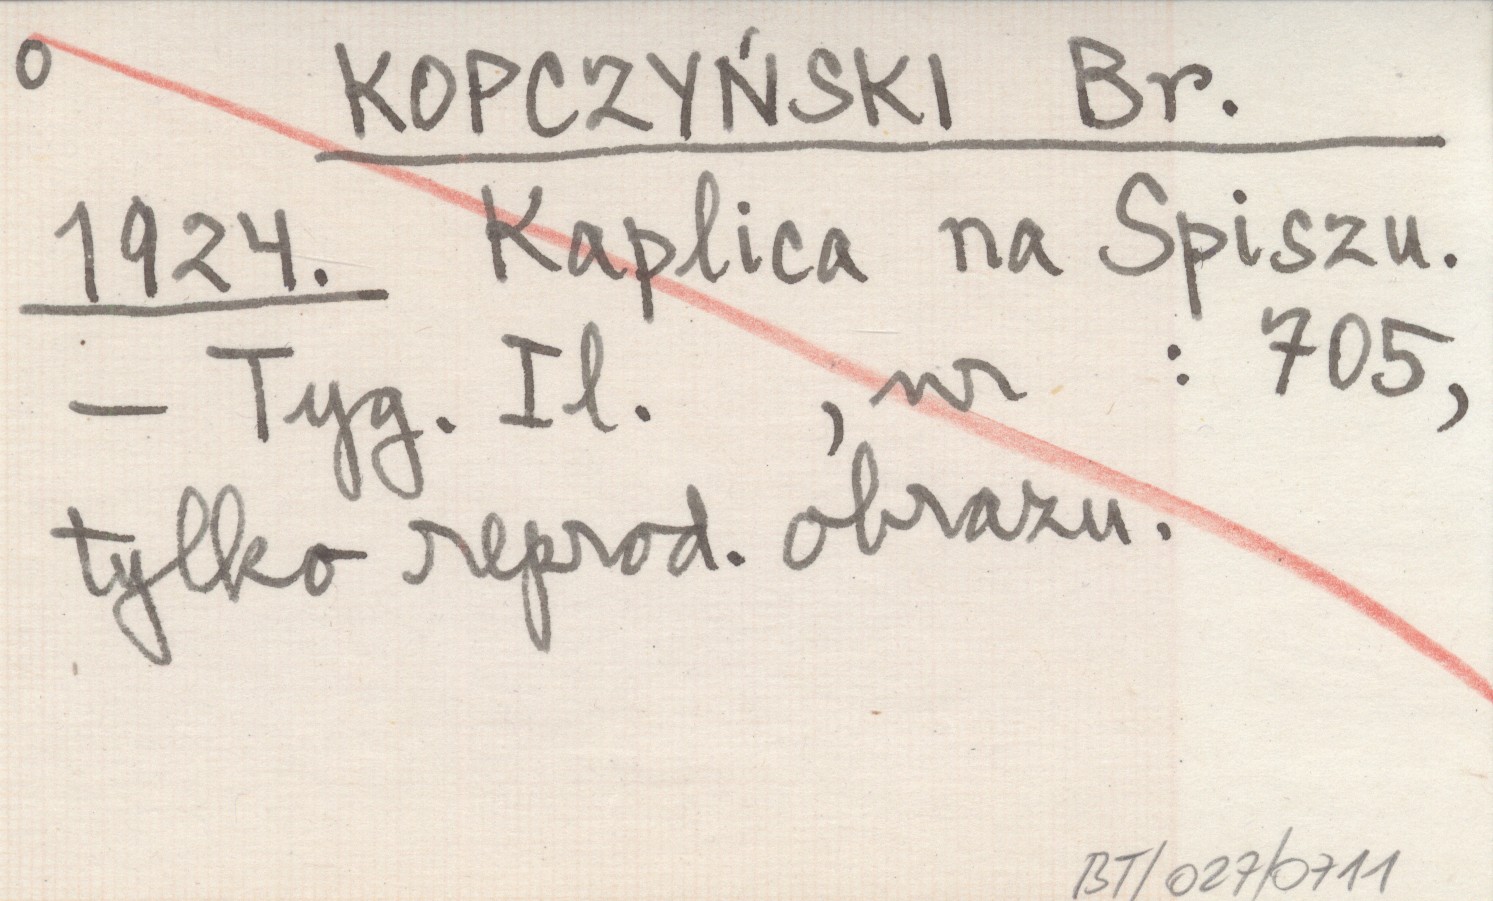 o KOPCZYŃSKI Br.
1924. Kaplica na Spiszu.
– Tyg. Il. , nr : 705,
tylko reprod. obrazu.
BT/027/0711